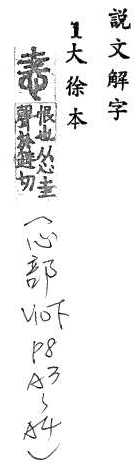 説文解字
1大徐本
恚
恨也从心圭
聲於避切
(心部 V10下 P8 A3~A4)